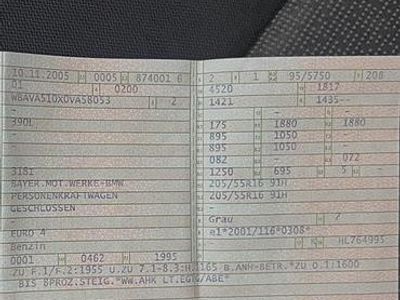 10.11.2005 0005 874001 6
01 0200
WBAVA51OX0VA58053 2
390L
318I
BAYER.MOT.WERKE-BMW
PERSONENKRAFTWAGEN
GESCHLOSSEN
-
EURO 4
Benzin
0001 0462 1995
2 1 95/5750 208
4520 1817
1421 1435--
- -
175 1880 1880
895 1050 -
895 1050 -
082 - 072
1250 695 5 -
205/55R16 91H
205/55R16 91H
-
Grau 7
e1*2001/116*0308*
HL764995
ZU F.1/F.2:1955 U.ZU 7.1-8.3:H.1165 B.ANH-BETR.*ZU O.1:1600
BIS 8PROZ.STEIG.*WW.AHK LT.EGTG/ABE*